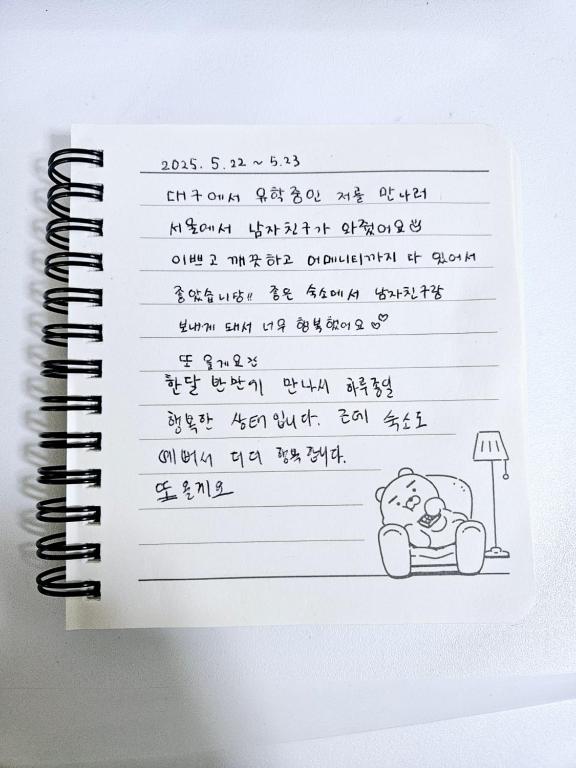 2025. 5.22 ~ 5.23
대구에서 유학중인 저를 만나러
서울에서 남자친구가 와줬어요
이쁘고 깨끗하고 어메니티까지 다 있어서
좋았습니당!! 좋은 숙소에서 남자친구랑
보내게 돼서 너무 행복했어요
또 올게요
한달 반만에 만나서 하루종일
행복한 상태입니다. 근데 숙소도
예뻐서 더더 행복합니다.
또 올게요